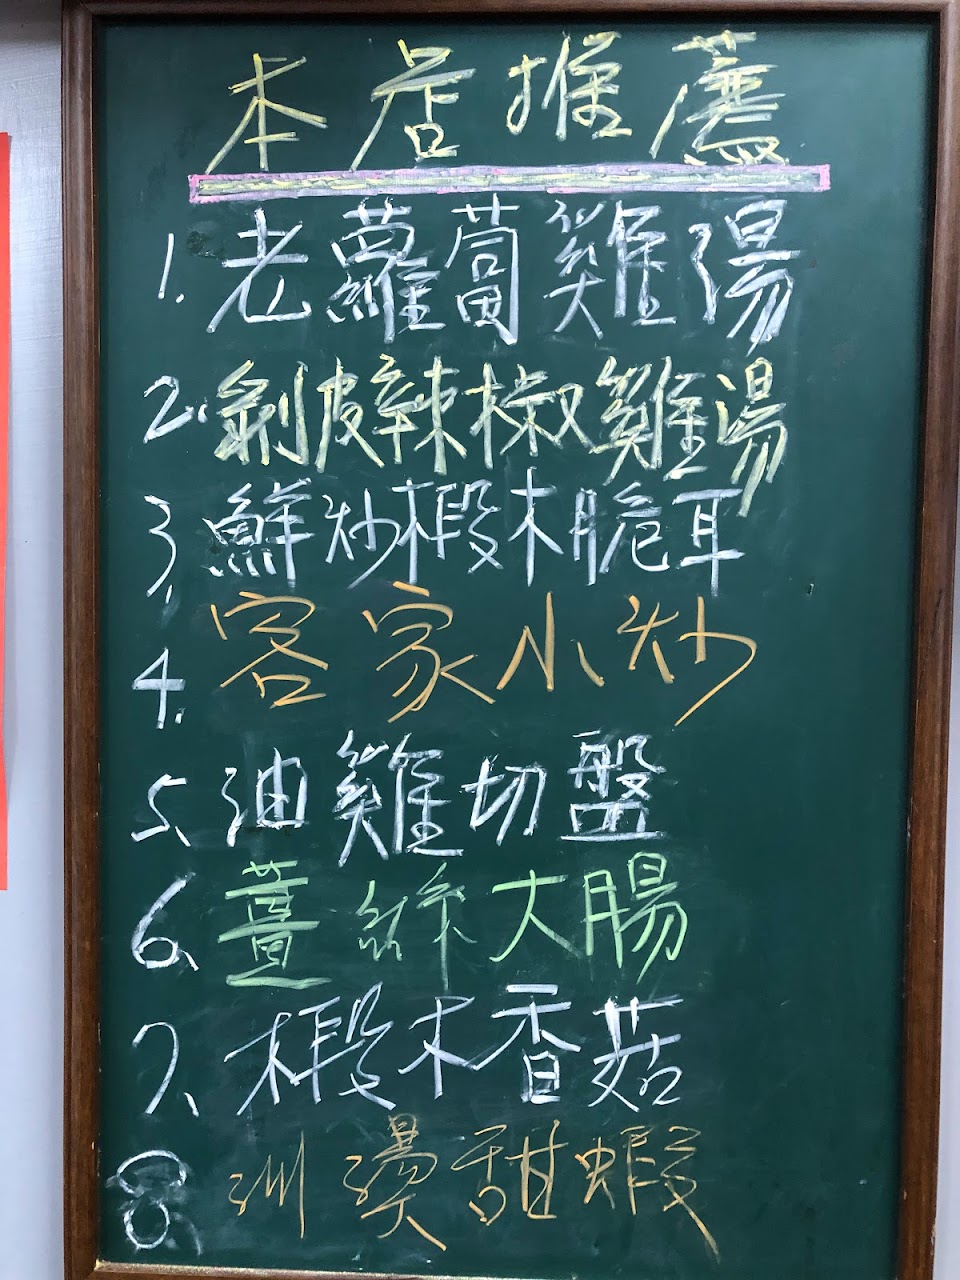 本店推薦
1. 老蘿蔔雞湯
2. 剝皮辣椒雞湯
3. 鮮炒椴木脆耳
4. 客家小炒
5. 油雞切盤
6. 薑絲大腸
7. 椴木香菇
8. 汌燙甜蝦